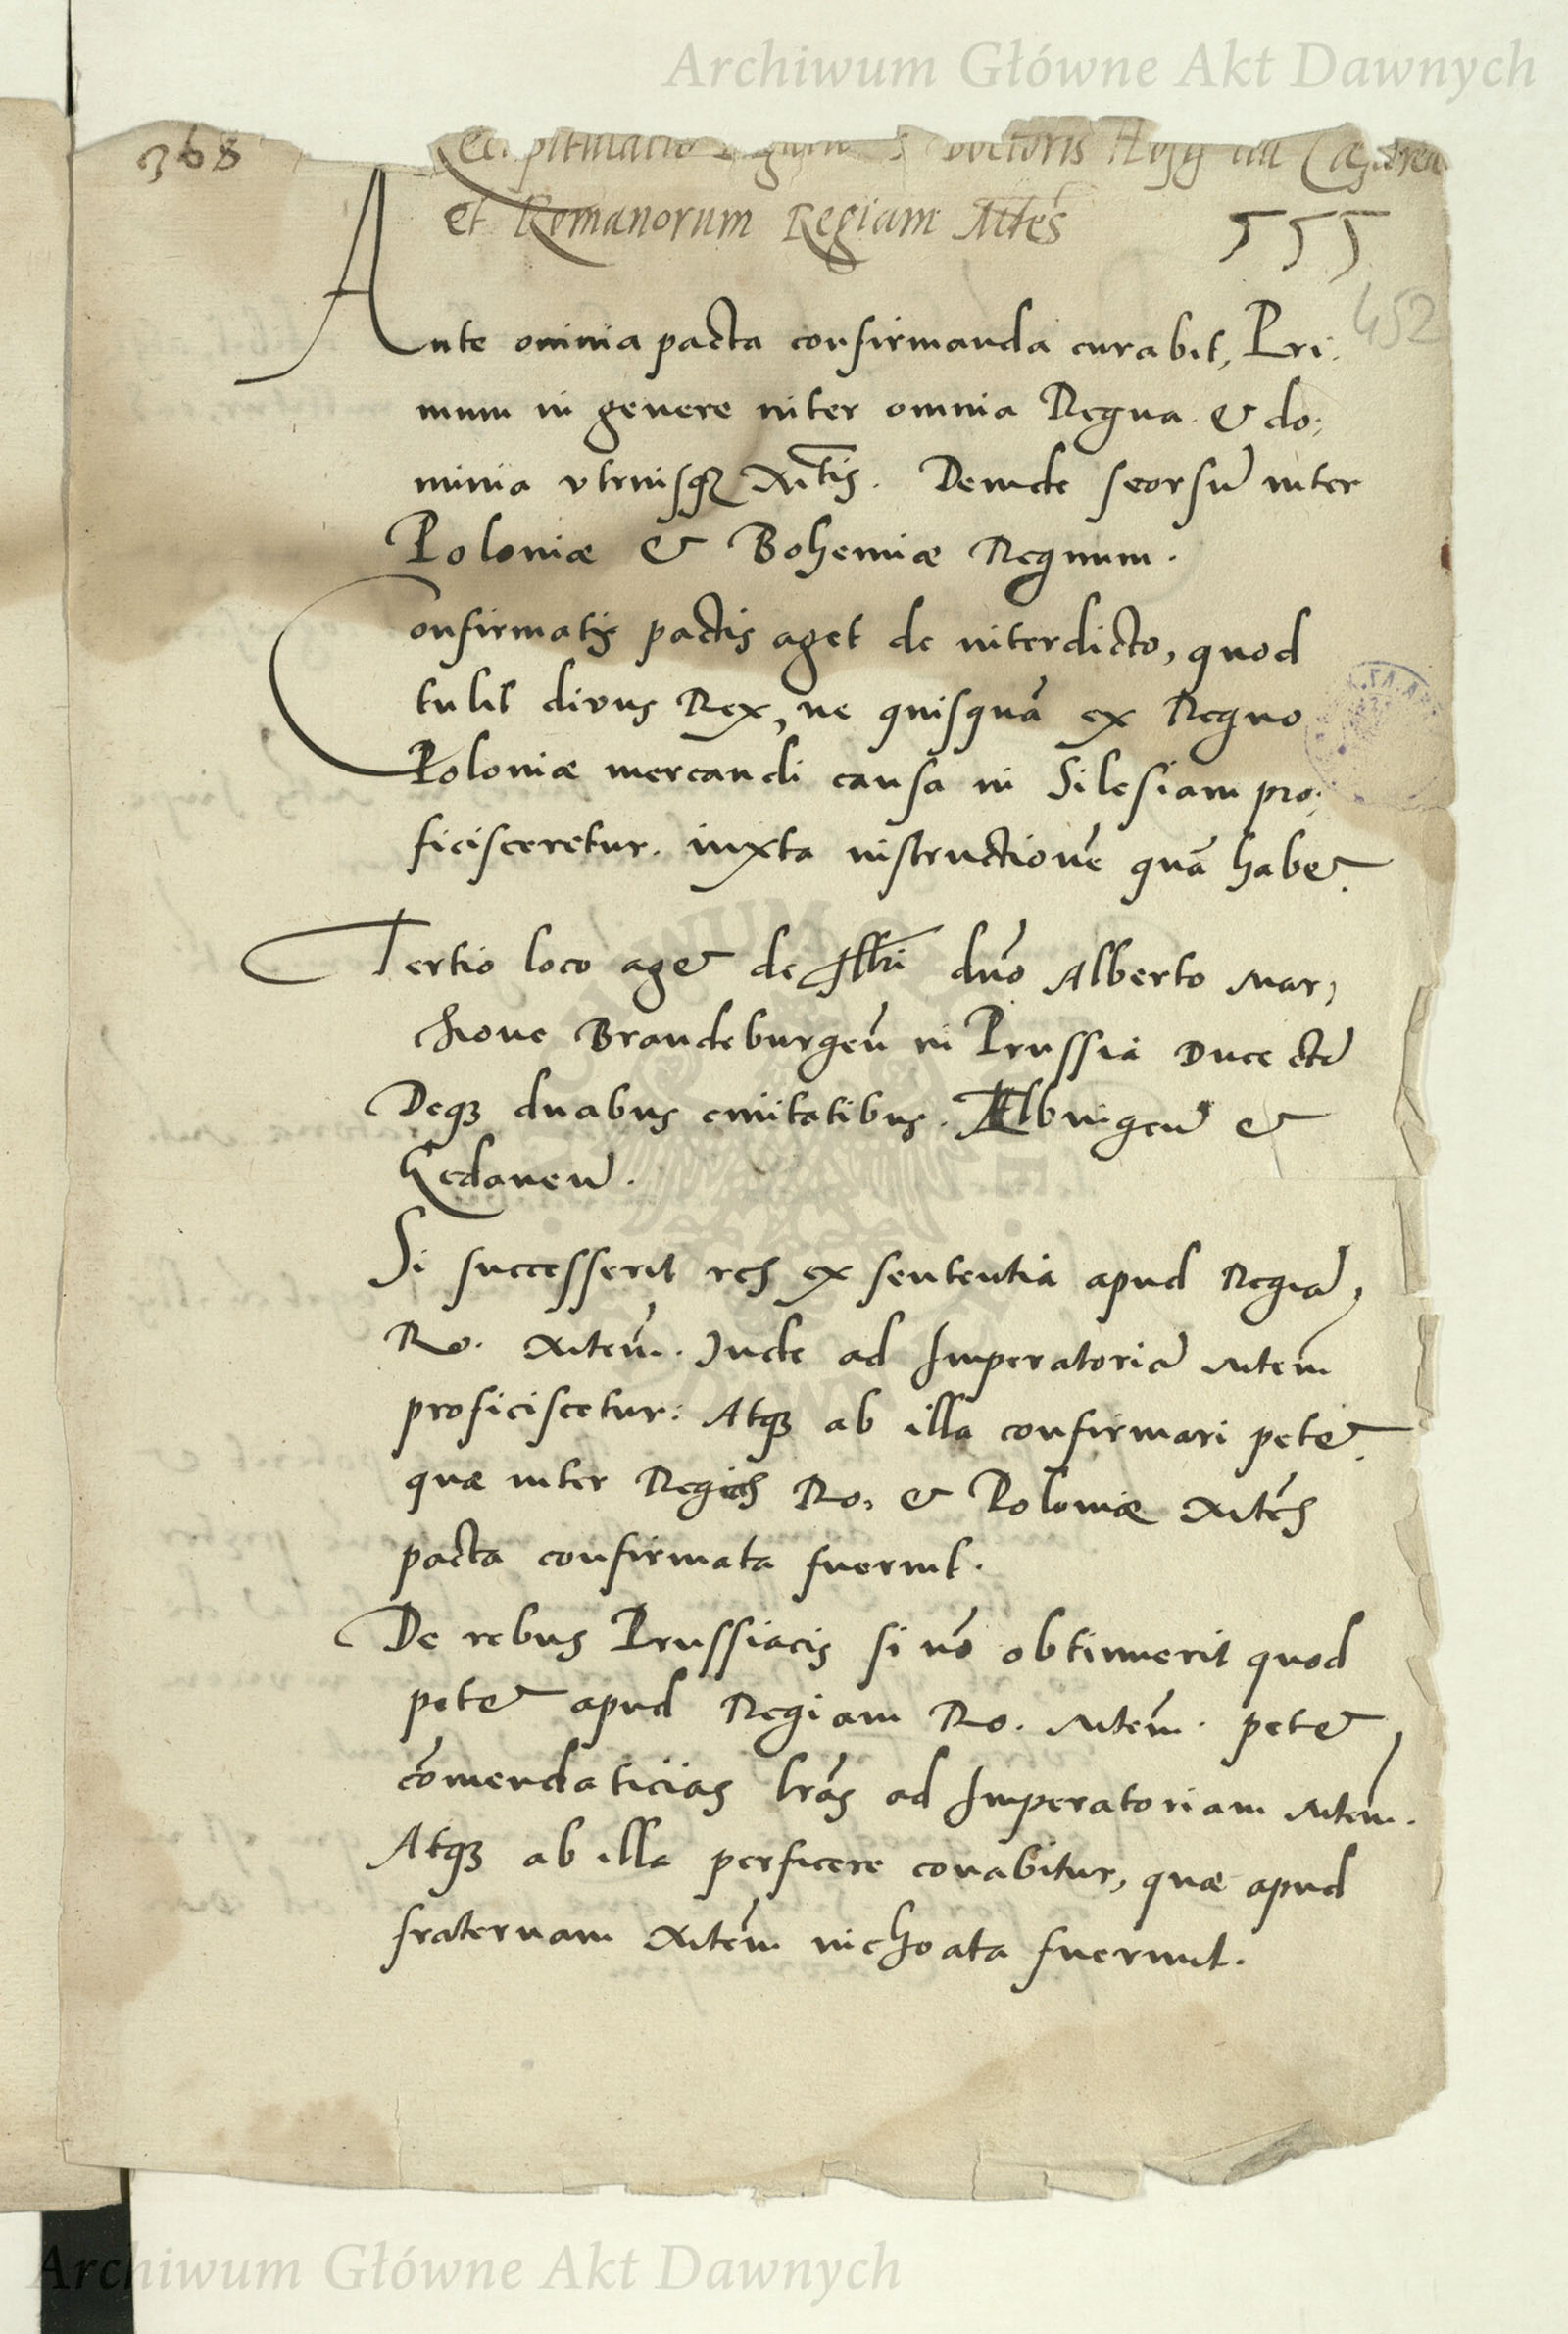 Archiwum Główne Akt Dawnych
368
Doctoris Hosij ad
et Romanorum Regiam Mtẽs
555
452
Ante omnia pacta confirmanda curabit, Pri:
mum in genere inter omnia Regna & do:
minia vtriusqꝫ Mtis. Deinde seorsũ inter
Poloniæ & Bohemiæ Regnum.
Confirmatis pactis aget de interdicto, quod
tulit divus Rex, ne quisquã ex Regno
Poloniæ mercandi causa in Silesiam pro:
ficisceretur. iuxta instructionẽ quã habet.
Tertio loco aget de Illri dño Alberto Mar:
chione Brandeburgeñ in Prussia Duce etc̃
Deqꝫ duabus ciuitatibus. Elbingeñ &
Gedaneñ.
Si successerit res ex sententia apud Regiã,
Ro. Mtem̃. Inde ad Imperatoriã Mtem̃
proficiscetur: Atqꝫ ab illa confirmari petet.
quæ inter Regias Ro. & Poloniæ Mtẽs
pacta confirmata fuerint.
De rebus Prussiacis si nõ obtinuerit quod
petet apud Regiam Ro. Mtem̃. petet
cõmendaticias lrãs ad Imperatoriam Mtem̃.
Atqꝫ ab illa perficere conabitur, quæ apud
fraternam Mtem̃ inchoata fuerint.
Archiwum Główne Akt Dawnych